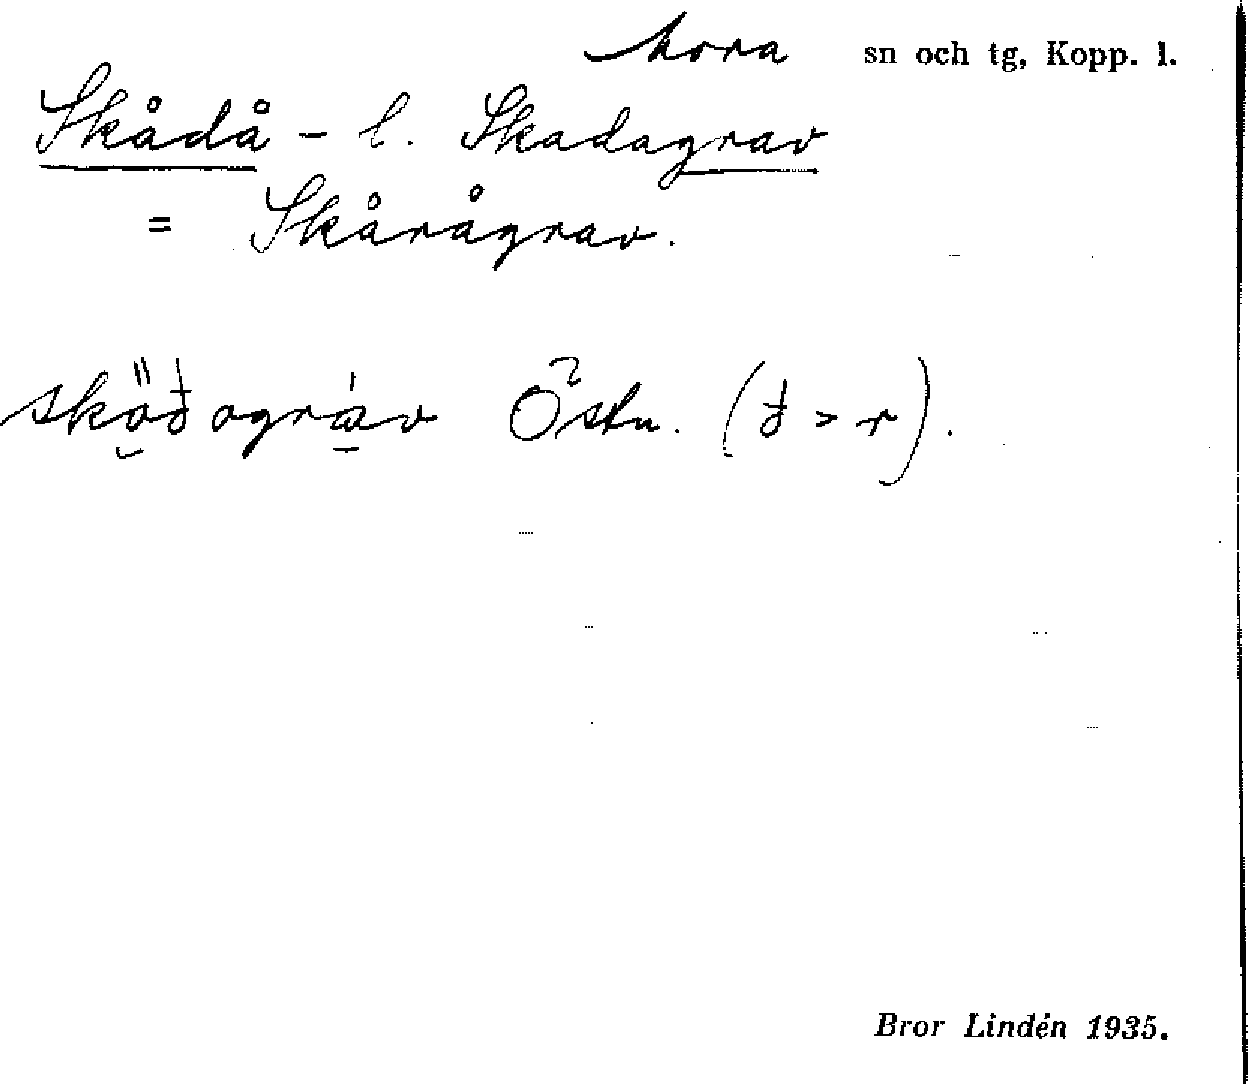 Mora sn och tg, Kopp. l.
Skådå - l. Skadagrav
= Skårågrav.
sköđograv Östn. (đ > r).
Bror Lindén 1935.